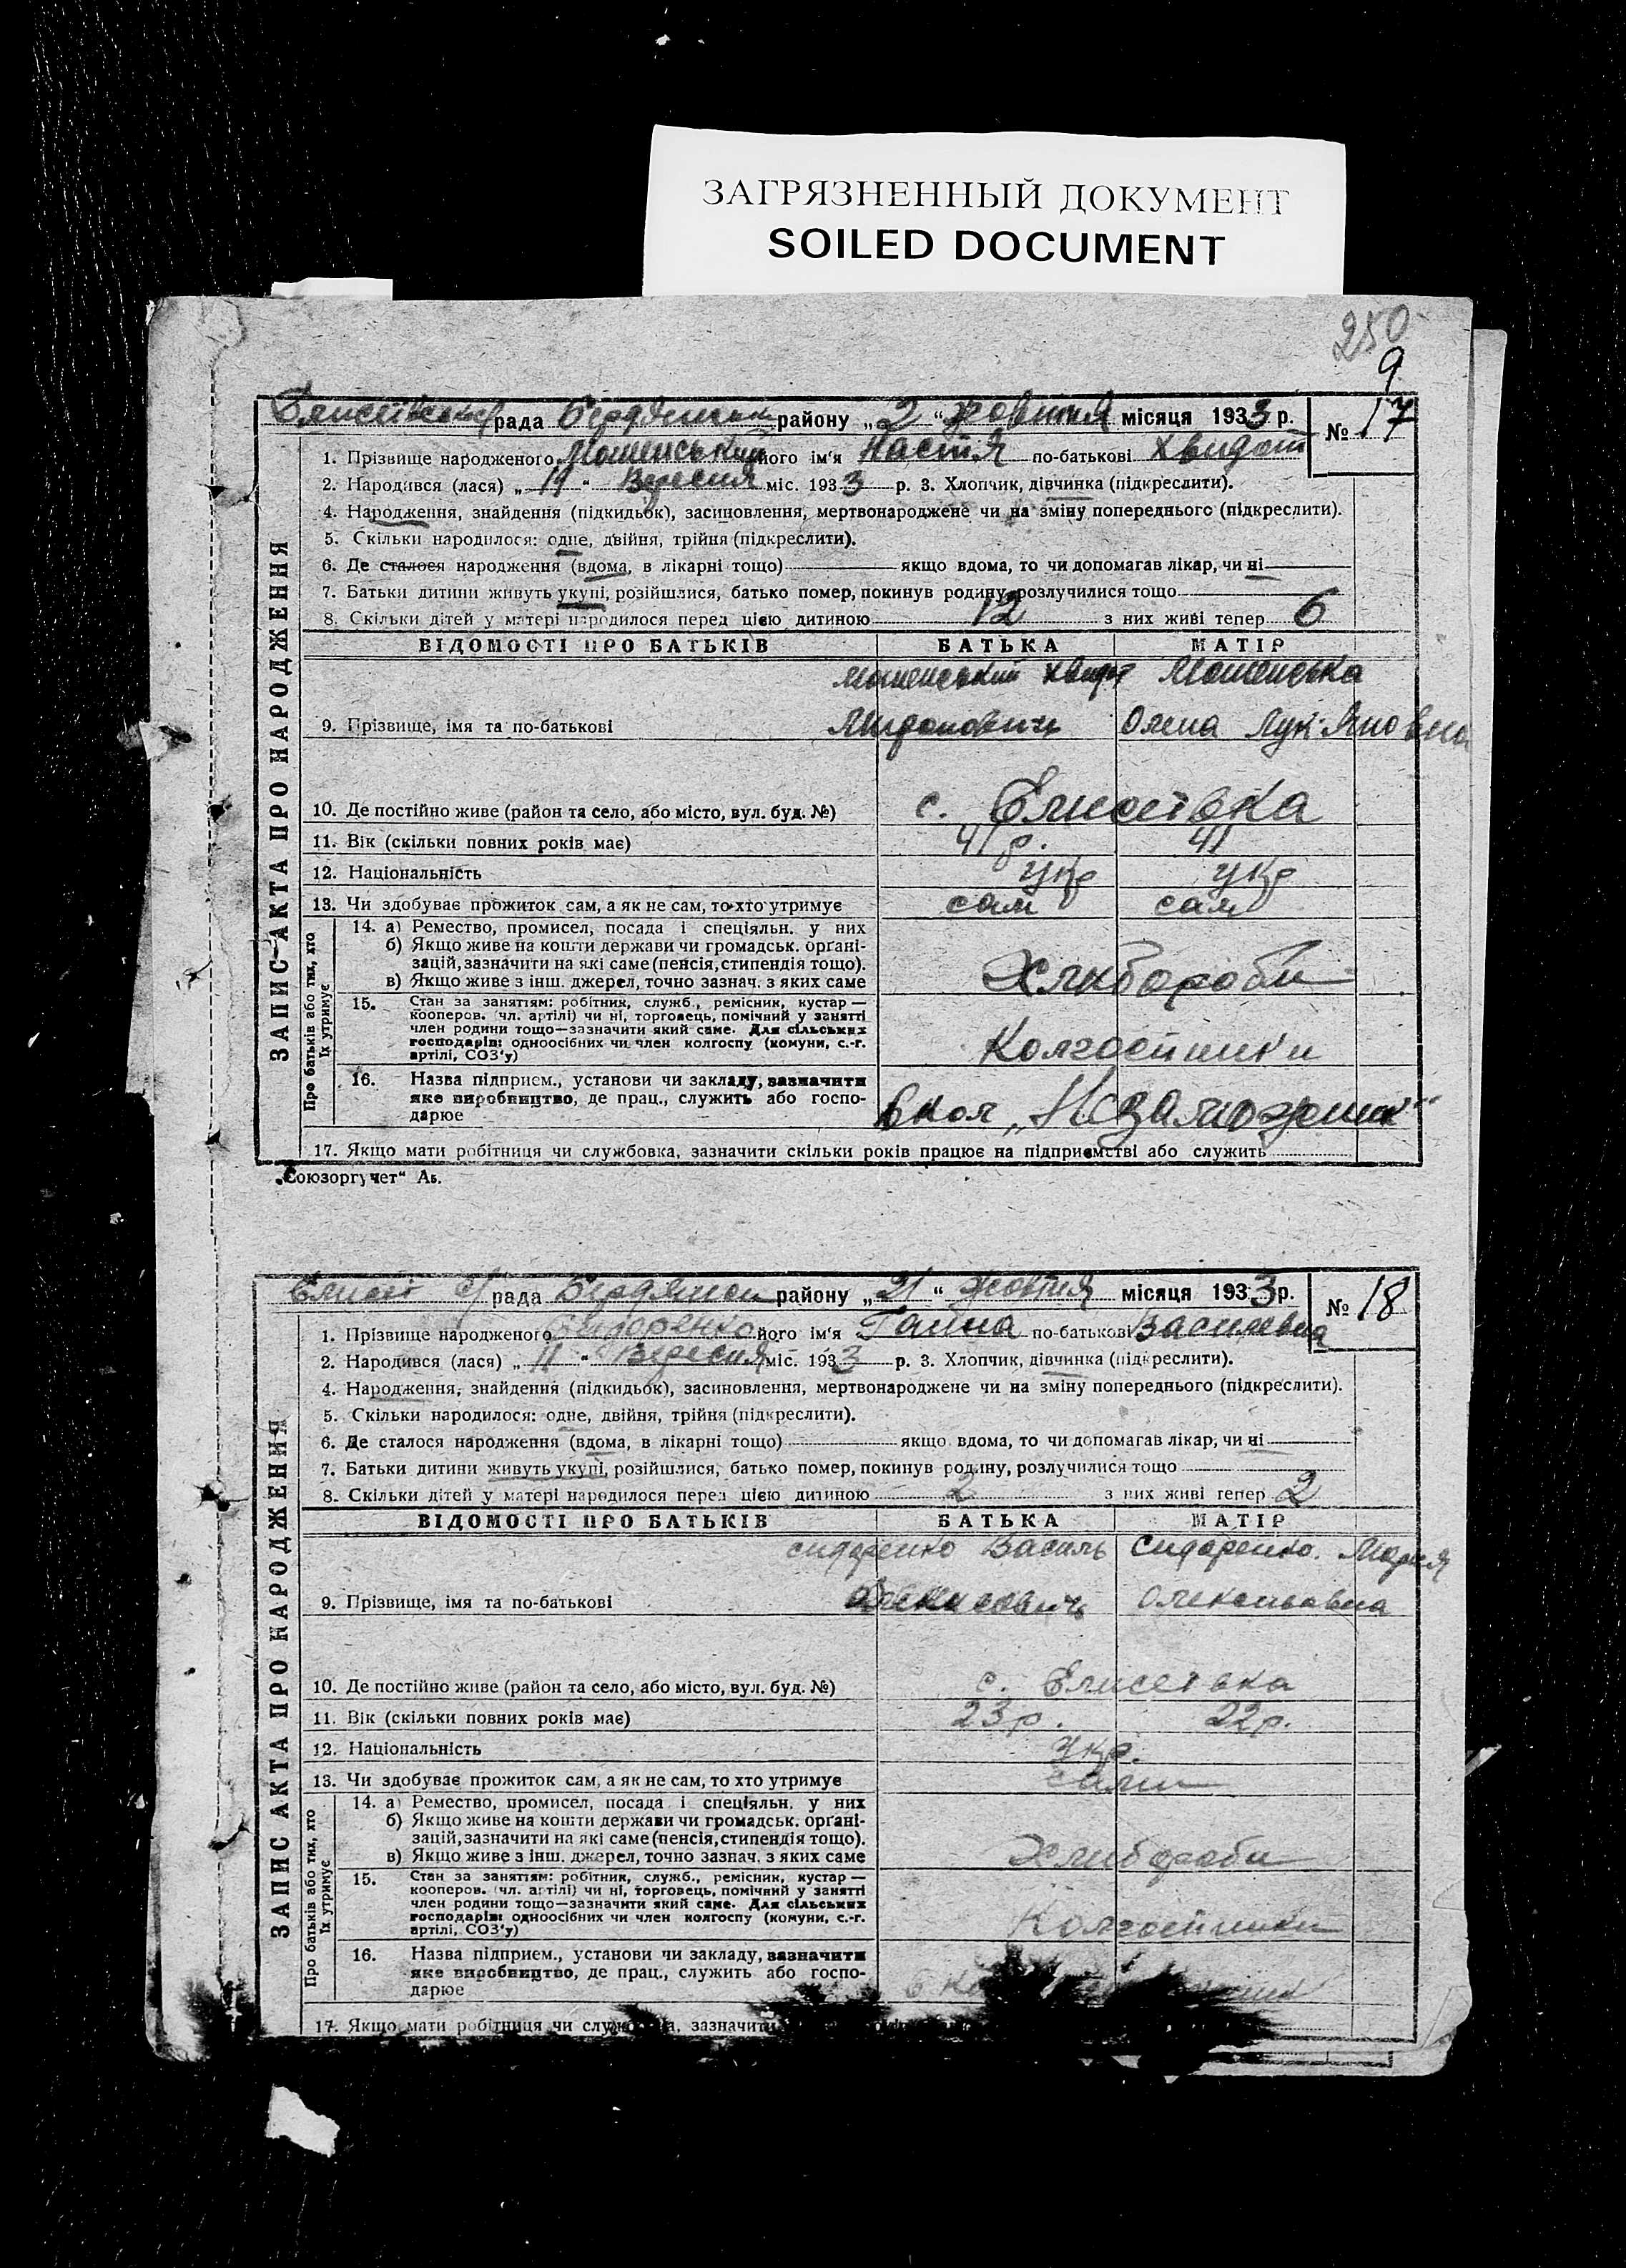 ЗАГРЯЗНЕННЫЙ ДОКУМЕНТ
SOILED DOCUMENT
250
9
рада район​у „2“ жовтня місяця 1933 р. № 17
1. Прізвище народженого Мошенський його ім'я Настя по-батькові Хвидот
2. Народився (лася) „11“ Вересня міс. 1933 р. 3. Хлопчик, дівчинка (підкреслити).
4. Народження, знайдення (підкидьок), засиновлення, мертвонароджене чи на зміну попереднього (підкреслити).
5. Скільки народилося: одне, двійня, трійня (підкреслити).
6. Де сталося народження (вдома, в лікарні тощо) якщо вдома, то чи допомагав лікар, чи ні
7. Батьки дитини живуть укупі, розійшлися, батько помер, покинув родину, розлучилися тощо
8. Скільки дітей у матері народилося перед цією дитиною 12 з них живі тепер 6
ВІДОМОСТІ ПРО БАТЬКІВ БАТЬКА МАТІР
Мошенський Хвидот Мошенська
9. Прізвище, імя та по-батькові Миронович Олена Лук'яновна
10. Де постійно живе (район та село, або місто, вул. буд. №) с. Єлисеївка
11. Вік (скільки повних років має) 41 р. 41
12. Національність укр укр
13. Чи здобуває прожиток сам, а як не сам, то хто утримує сам сам
14. а) Ремество, промисел, посада і спеціяльн. у них
б) Якщо живе на кошти держави чи громадськ. орґані-
зацій, зазначити на які саме (пенсія, стипендія тощо).
в) Якщо живе з інш. джерел, точно зазнач. з яких саме Хлибороби
15. Стан за заняттям: робітник, служб., ремісник, кустар —
кооперов. (чл. артілі) чи ні, торговець, помічний у занятті
член родини тощо—зазначити який саме. Для сільських
господарів: одноосібних чи член колгоспу (комуни, с.-г.
артілі, СОЗ'у) Колгоспники
16. Назва підприєм., установи чи закладу, зазначити
яке виробництво, де прац., служить або госпо-
дарює в кол „Незаможник“
17. Якщо мати робітниця чи службовка, зазначити скільки років працює на підприємстві або служить
ЗАПИС АКТА ПРО НАРОДЖЕННЯ
Про батьків або тих, хто
їх утримує
„Союзоргучет“ Аз.
Єлисеї с/ рада району „21“ жовтня місяця 1933 р. № 18
1. Прізвище народженого Сидоренко його ім'я Ганна по-батькові Василевна
2. Народився (лася) „11“ Вересня міс. 1933 р. 3. Хлопчик, дівчинка (підкреслити).
4. Народження, знайдення (підкидьок), засиновлення, мертвонароджене чи на зміну попереднього (підкреслити).
5. Скільки народилося: одне, двійня, трійня (підкреслити).
6. Де сталося народження (вдома, в лікарні тощо) якщо вдома, то чи допомагав лікар, чи ні
7. Батьки дитини живуть укупі, розійшлися, батько помер, покинув родину, розлучилися тощо
8. Скільки дітей у матері народилося перед цією дитиною 2 з них живі тепер 2
ВІДОМОСТІ ПРО БАТЬКІВ БАТЬКА МАТІР
Сидоренко Василь Сидоренко Мария
9. Прізвище, імя та по-батькові Олексиевна
10. Де постійно живе (район та село, або місто, вул. буд. №) с. Єлисеївка
11. Вік (скільки повних років має) 23 р. 22 р.
12. Національність Укр.
13. Чи здобуває прожиток сам, а як не сам, то хто утримує сами
14. а) Ремество, промисел, посада і спеціяльн. у них
б) Якщо живе на кошти держави чи громадськ. орґані-
зацій, зазначити на які саме (пенсія, стипендія тощо).
в) Якщо живе з інш. джерел, точно зазнач. з яких саме Хлибороби
15. Стан за заняттям: робітник, служб., ремісник, кустар —
кооперов. (чл. артілі) чи ні, торговець, помічний у занятті
член родини тощо—зазначити який саме. Для сільських
господарів: одноосібних чи член колгоспу (комуни, с.-г.
артілі, СОЗ'у) Колгоспники
16. Назва підприєм., установи чи закладу, зазначити
яке виробництво, де прац., служить або госпо-
дарює в
17. Якщо мати робітниця чи зазначити
ЗАПИС АКТА ПРО НАРОДЖЕННЯ
Про батьків або тих, хто
їх утримує